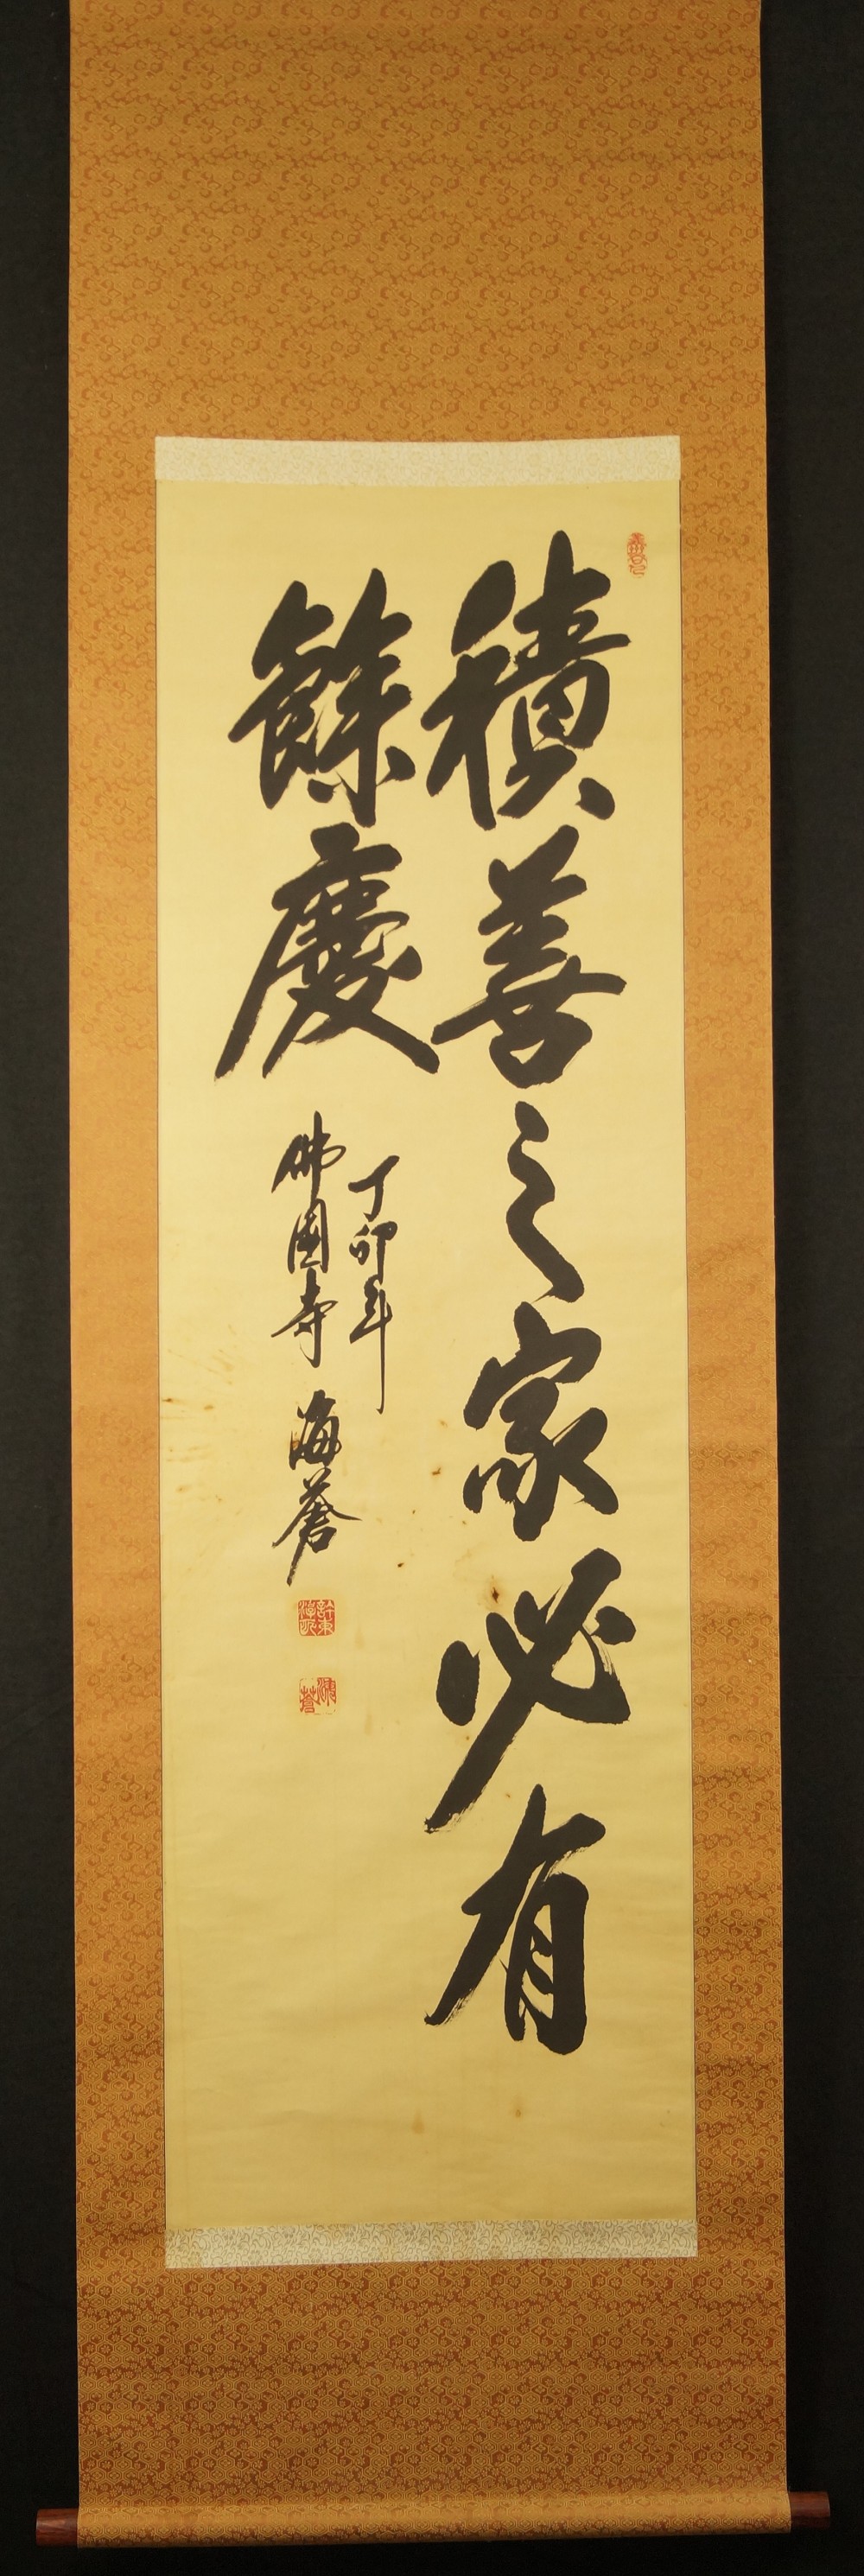 積善之家必有
餘慶
丁卯年
佛國寺 海蒼